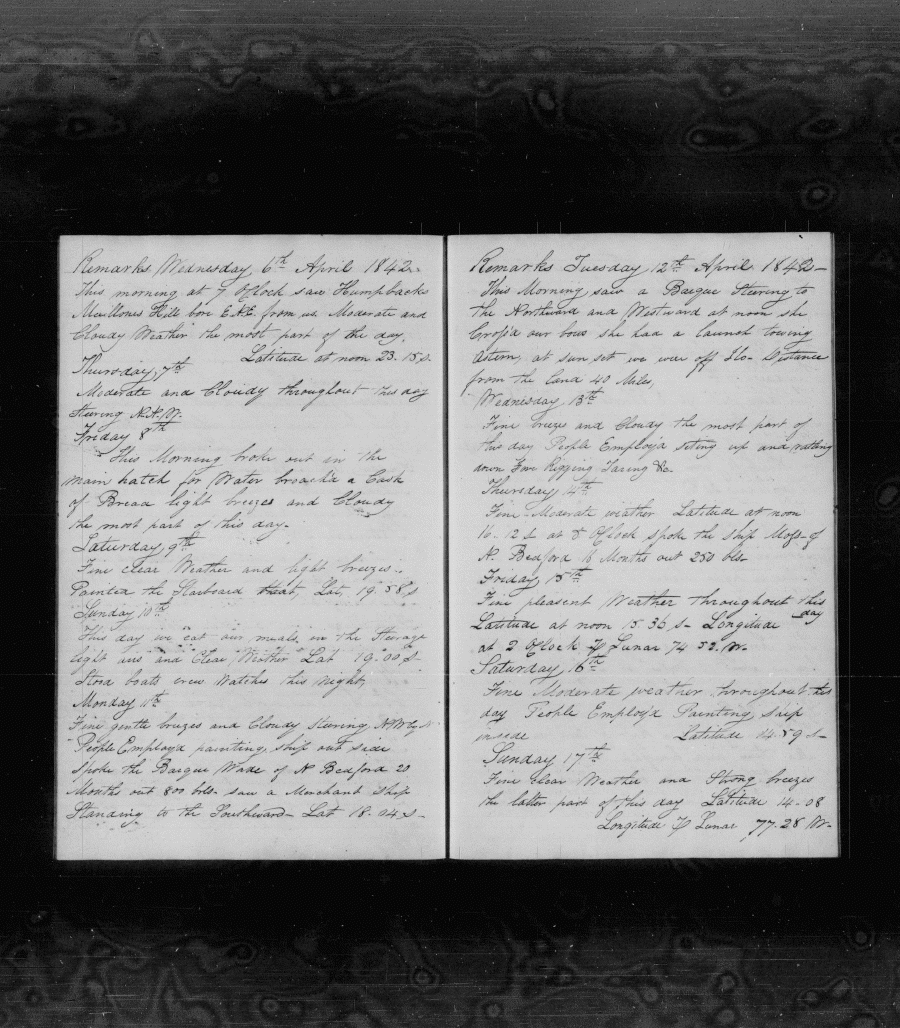 Remarks Wednesday 6th April 1842
This morning at 7 OClock saw Humpbacks
Hill bore E.N.E. from us. Moderate and
Cloudy Weather the most part of the day.
Latitude at noon 23.15 s.
Thursday, 7th
Moderate and Cloudy throughout this day
steering N.N.W.
Friday 8th
This Morning broke out in the
main hatch for Water broach'd a Cask
of Bread light breezes and Cloudy
the most part of this day.
Saturday 9th
Fine clear Weather and light breezes.
Painted the Starboard Lat, 19°58 s
Sunday 10th
This day we eat our meals in the Steerage
light airs and Clear Weather Lat 19°00 S
Stood boats crew Watches this Night,
Monday 11th
Fine gentle breezes and Cloudy Steering N.W by N
People Employ'd painting ship out side
Spoke the Barque Wade of N Bedford 20
Months out 800 bbls- saw a Merchant Ship
Standing to the Southward- Lat 18-04 S-
Remarks Tuesday 12th April 1842-
This Morning saw a Barque Steering to
the Northward and Westward at noon she
Cross'd our bows she had a launch towing
astern, at sun set we war off Ilo- Distance
from the land 40 Miles,
Wednesday 13th
Fine breezes and Cloudy the most part of
this day People Employ'd seting up and ratling
down Fore Rigging Taring &c.
Thursday 14th
Fine Moderate weather Latitude at noon
16-12 S at 8 OClock spoke the ship of
N. Bedford 16 Months out 250 bls-
Friday 15th
Fine pleasent Weather throughout this
day
Latitude at noon 15.36 S- Longitude
at 2 OClock Lunar 74 52 W-
Saturday 16th
Fine Moderate weather throughout this
day People Employ'd Painting ship
inside Latitude 14-59 S-
Sunday 17th
Fine clear Weather and Strong breezes
the latter part of this day Latitude 14-08
Longitude Lunar 77-28 W-